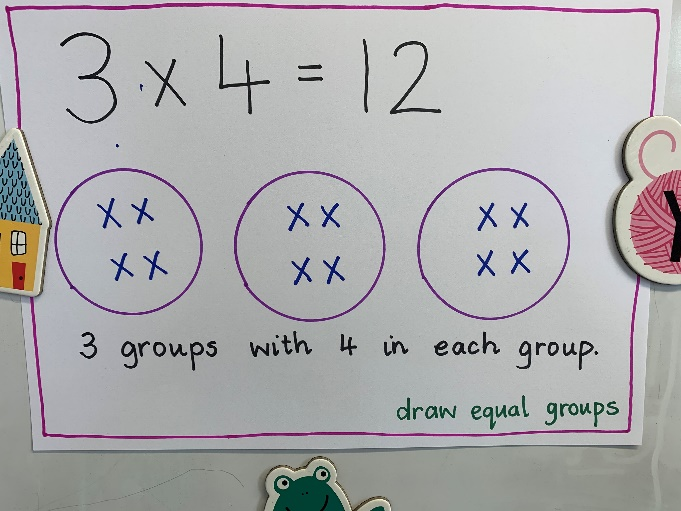 3 x 4 = 12
x x x x x x
x x x x x x
3 groups with 4 in each group.
draw equal groups
Y